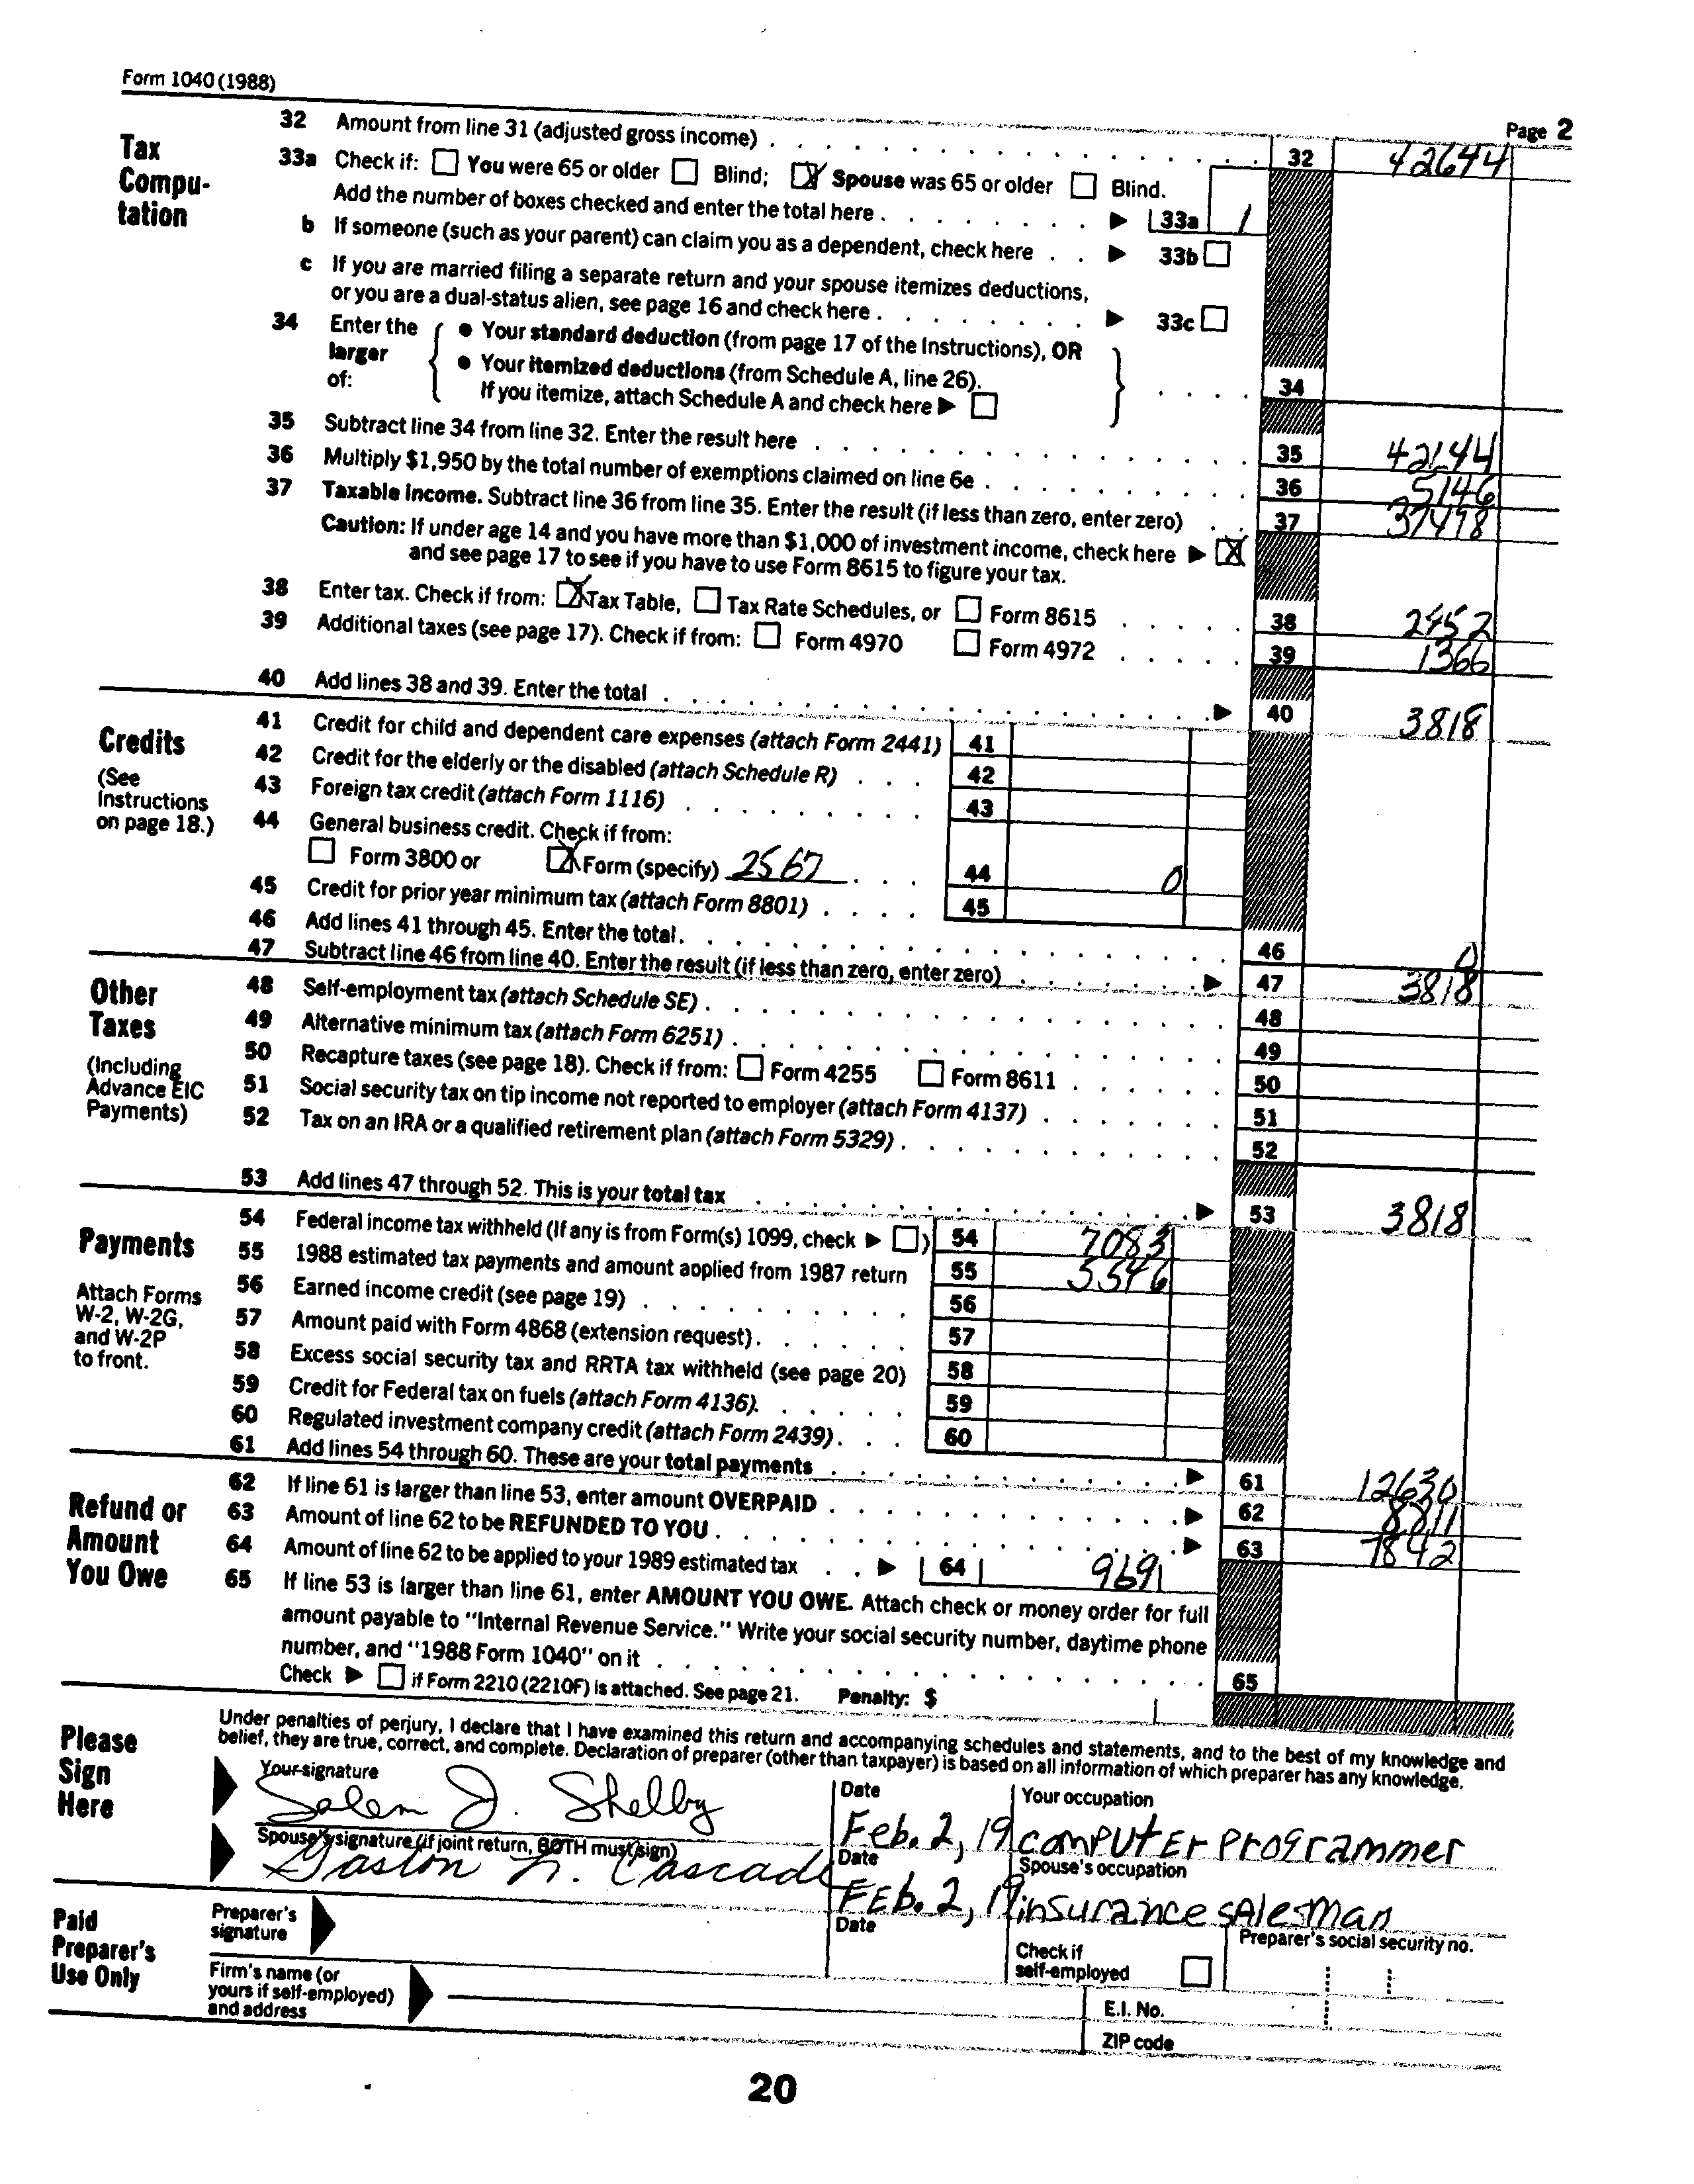 Form 1040 (1988)
Page 2
Tax Compu-tation
32 Amount from line 31 (adjusted gross income) . . . 32 42644
33a Check if: You were 65 or older Blind; X Spouse was 65 or older Blind.
Add the number of boxes checked and enter the total here . . . 33a 1
b If someone (such as your parent) can claim you as a dependent, check here . . 33b
c If you are married filing a separate return and your spouse itemizes deductions,
or you are a dual-status alien, see page 16 and check here . . . 33c
34 Enter the larger of: • Your standard deduction (from page 17 of the Instructions), OR
• Your itemized deductions (from Schedule A, line 26).
If you itemize, attach Schedule A and check here . . . 34
35 Subtract line 34 from line 32. Enter the result here . . . 35 42144
36 Multiply $1,950 by the total number of exemptions claimed on line 6e . . . 36 5146
37 Taxable income. Subtract line 36 from line 35. Enter the result (if less than zero, enter zero) . . 37 37498
Caution: If under age 14 and you have more than $1,000 of investment income, check here X
and see page 17 to see if you have to use Form 8615 to figure your tax.
38 Enter tax. Check if from: X Tax Table, Tax Rate Schedules, or Form 8615 . . . 38 2452
39 Additional taxes (see page 17). Check if from: Form 4970 Form 4972 . . . 39 1366
40 Add lines 38 and 39. Enter the total . . . 40 3818
Credits
(See Instructions on page 18.)
41 Credit for child and dependent care expenses (attach Form 2441) 41
42 Credit for the elderly or the disabled (attach Schedule R) . . . 42
43 Foreign tax credit (attach Form 1116) . . . 43
44 General business credit. Check if from:
Form 3800 or X Form (specify) 2567 . . . 44 0
45 Credit for prior year minimum tax (attach Form 8801) . . . 45
46 Add lines 41 through 45. Enter the total . . . 46 0
47 Subtract line 46 from line 40. Enter the result (if less than zero, enter zero) . . . 47 3818
Other Taxes
(Including Advance EIC Payments)
48 Self-employment tax (attach Schedule SE) . . . 48
49 Alternative minimum tax (attach Form 6251) . . . 49
50 Recapture taxes (see page 18). Check if from: Form 4255 Form 8611 . . . 50
51 Social security tax on tip income not reported to employer (attach Form 4137) . . . 51
52 Tax on an IRA or a qualified retirement plan (attach Form 5329) . . . 52
53 Add lines 47 through 52. This is your total tax . . . 53 3818
Payments
Attach Forms W-2, W-2G, and W-2P to front.
54 Federal income tax withheld (If any is from Form(s) 1099, check ) 54 7083
55 1988 estimated tax payments and amount applied from 1987 return 55 5546
56 Earned income credit (see page 19) . . . 56
57 Amount paid with Form 4868 (extension request) . . . 57
58 Excess social security tax and RRTA tax withheld (see page 20) 58
59 Credit for Federal tax on fuels (attach Form 4136). . . . 59
60 Regulated investment company credit (attach Form 2439) . . . 60
61 Add lines 54 through 60. These are your total payments . . . 61 12630
Refund or Amount You Owe
62 If line 61 is larger than line 53, enter amount OVERPAID . . . 62 8811
63 Amount of line 62 to be REFUNDED TO YOU . . . 63 7842
64 Amount of line 62 to be applied to your 1989 estimated tax . . 64 969
65 If line 53 is larger than line 61, enter AMOUNT YOU OWE. Attach check or money order for full
amount payable to "Internal Revenue Service." Write your social security number, daytime phone
number, and "1988 Form 1040" on it . . . 65
Check if Form 2210 (2210F) is attached. See page 21. Penalty: $
Please Sign Here
Under penalties of perjury, I declare that I have examined this return and accompanying schedules and statements, and to the best of my knowledge and
belief, they are true, correct, and complete. Declaration of preparer (other than taxpayer) is based on all information of which preparer has any knowledge.
Your signature Date Your occupation
Salem J. Shelby Feb. 2, 19 computer programmer
Spouse's signature (if joint return, BOTH must sign) Date Spouse's occupation
Gaston N. Cascade Feb. 2, 19 insurance salesman
Paid Preparer's Use Only
Preparer's signature Date Check if self-employed Preparer's social security no.
Firm's name (or yours if self-employed) and address
E.I. No.
ZIP code
20